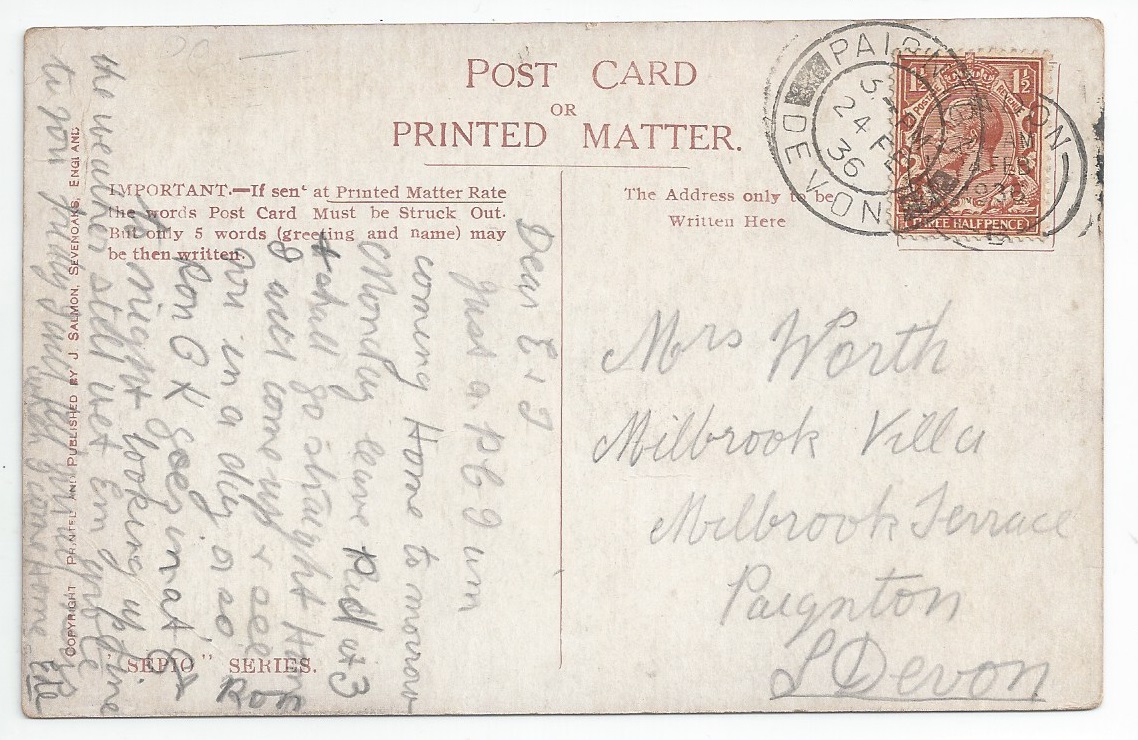 POST CARD
OR
PRINTED MATTER.
IMPORTANT.—If sent at Printed Matter Rate
the words Post Card Must be Struck Out.
But only 5 words (greeting and name) may
be then written.
The Address only to be
Written Here
PAIGNTON
DEVON
24 FEB
36
POSTAGE REVENUE
1½ 1½
THREE HALFPENCE
Mrs Worth
Milbrook Villa
Milbrook Terrace
Paignton
S Devon
Dear E & J
Just a P C I um
coming Home to morrow
Monday leave at 3
& shall go straight Home
I will come up & see
you in a day or so Ron
Ron O K goes in at
might looking up fine
the weather still wet Em
to you
Home
"SEPIO" SERIES.
COPYRIGHT PRINTED AND PUBLISHED BY J. SALMON, SEVENOAKS, ENGLAND